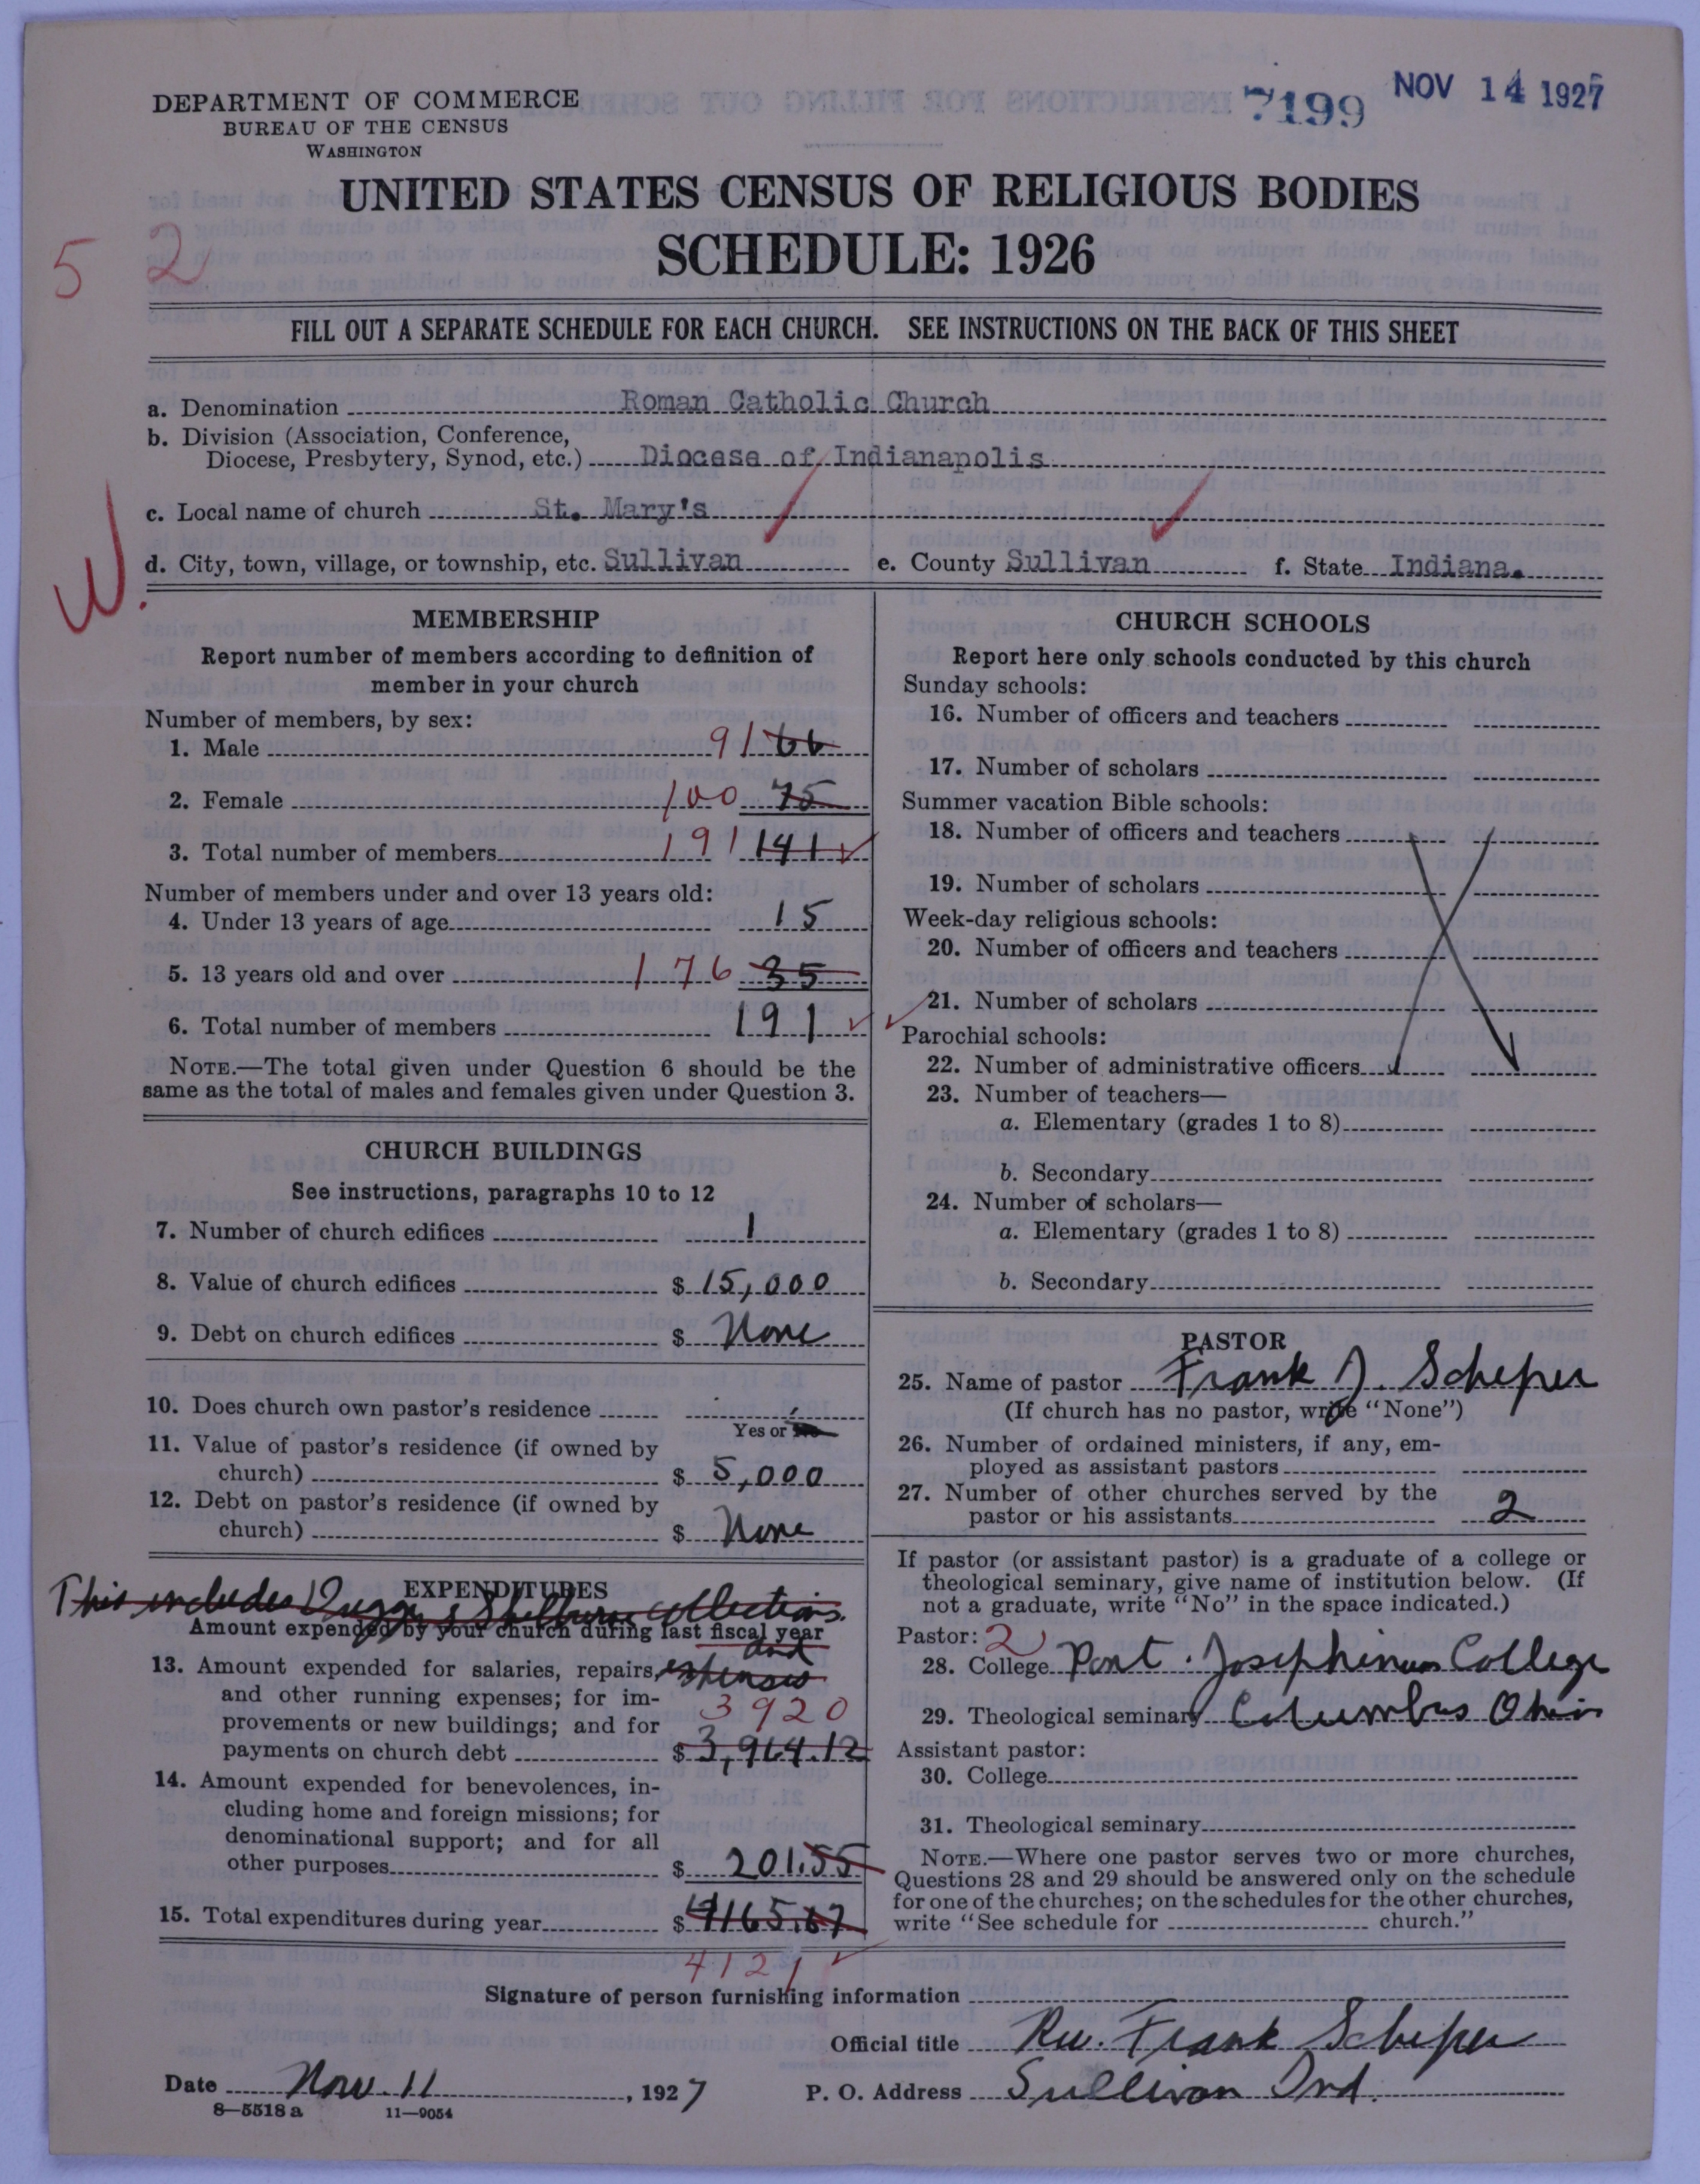 DEPARTMENT OF COMMERCE
BUREAU OF THE CENSUS
WASHINGTON
7199
NOV 14 1927
UNITED STATES CENSUS OF RELIGIOUS BODIES
SCHEDULE: 1926
5 2
FILL OUT A SEPARATE SCHEDULE FOR EACH CHURCH. SEE INSTRUCTIONS ON THE BACK OF THIS SHEET
a. Denomination Roman Catholic Church
b. Division (Association, Conference,
Diocese, Presbytery, Synod, etc.) Diocese of Indianapolis
c. Local name of church St. Mary's
W.
d. City, town, village, or township, etc. Sullivan e. County Sullivan f. State Indiana.
MEMBERSHIP
Report number of members according to definition of
member in your church
Number of members, by sex:
1. Male 91 66
2. Female 100 75
3. Total number of members 191 141
Number of members under and over 13 years old:
4. Under 13 years of age 15
5. 13 years old and over 176 35
6. Total number of members 191
NOTE.—The total given under Question 6 should be the
same as the total of males and females given under Question 3.
CHURCH BUILDINGS
See instructions, paragraphs 10 to 12
7. Number of church edifices 1
8. Value of church edifices $ 15,000
9. Debt on church edifices $ None
10. Does church own pastor's residence
Yes or No
11. Value of pastor's residence (if owned by
church) $ 5,000
12. Debt on pastor's residence (if owned by
church) $ None
EXPENDITURES
This includes Dugger & Shelburn collections.
Amount expended by your church during last fiscal year
and
13. Amount expended for salaries, repairs, expenses
and other running expenses; for im-
provements or new buildings; and for 3920
payments on church debt $ 3,964.12
14. Amount expended for benevolences, in-
cluding home and foreign missions; for
denominational support; and for all
other purposes $ 201.55
15. Total expenditures during year $ 4165.67
4121
CHURCH SCHOOLS
Report here only schools conducted by this church
Sunday schools:
16. Number of officers and teachers
17. Number of scholars
Summer vacation Bible schools:
18. Number of officers and teachers
19. Number of scholars
Week-day religious schools:
20. Number of officers and teachers
21. Number of scholars
Parochial schools:
22. Number of administrative officers
23. Number of teachers—
a. Elementary (grades 1 to 8)
b. Secondary
24. Number of scholars—
a. Elementary (grades 1 to 8)
b. Secondary
PASTOR
25. Name of pastor Frank J. Scheper
(If church has no pastor, write "None")
26. Number of ordained ministers, if any, em-
ployed as assistant pastors
27. Number of other churches served by the
pastor or his assistants 2
If pastor (or assistant pastor) is a graduate of a college or
theological seminary, give name of institution below. (If
not a graduate, write "No" in the space indicated.)
Pastor: 2
28. College Pont. Josephinum College
29. Theological seminary Columbus Ohio
Assistant pastor:
30. College
31. Theological seminary
NOTE.—Where one pastor serves two or more churches,
Questions 28 and 29 should be answered only on the schedule
for one of the churches; on the schedules for the other churches,
write "See schedule for church."
Signature of person furnishing information
Official title Rev. Frank Scheper
Date Nov. 11, 1927 P. O. Address Sullivan Ind.
8—5518 a 11—9054